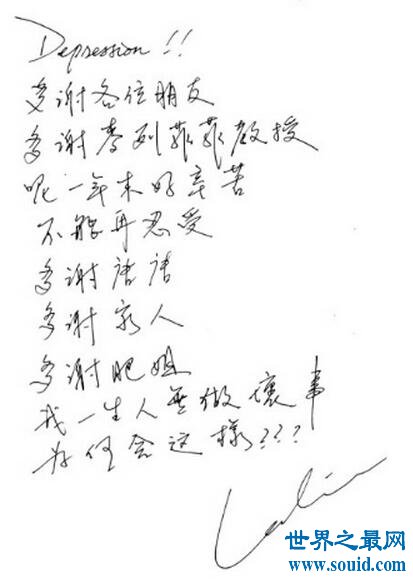 Depression !!
多谢各位朋友
多谢麦列菲菲教授
呢一年来好辛苦
不能再忍受
多谢唐唐
多谢家人
多谢肥姐
我一生人無做壞事
为何会这樣???
Leslie
世界之最网
www.souid.com